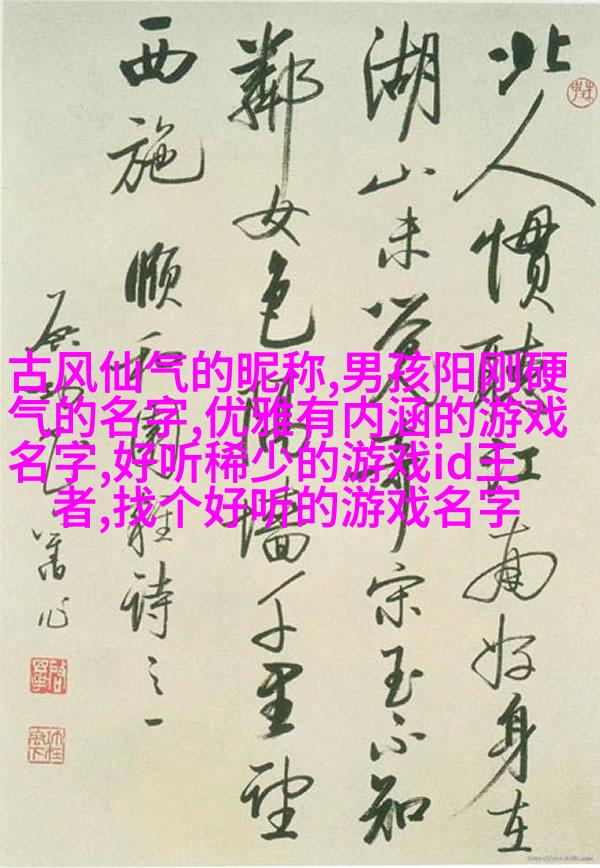 北人慣聽江南好身在
湖山未覺奇宋玉不知
鄰女色隔墙千里望
西施 頤和園雜詩之一
启功 舊作
古风仙气的昵称,男孩阳刚硬
气的名字,优雅有内涵的游戏
名字,好听稀少的游戏id王
者,找个好听的游戏名字